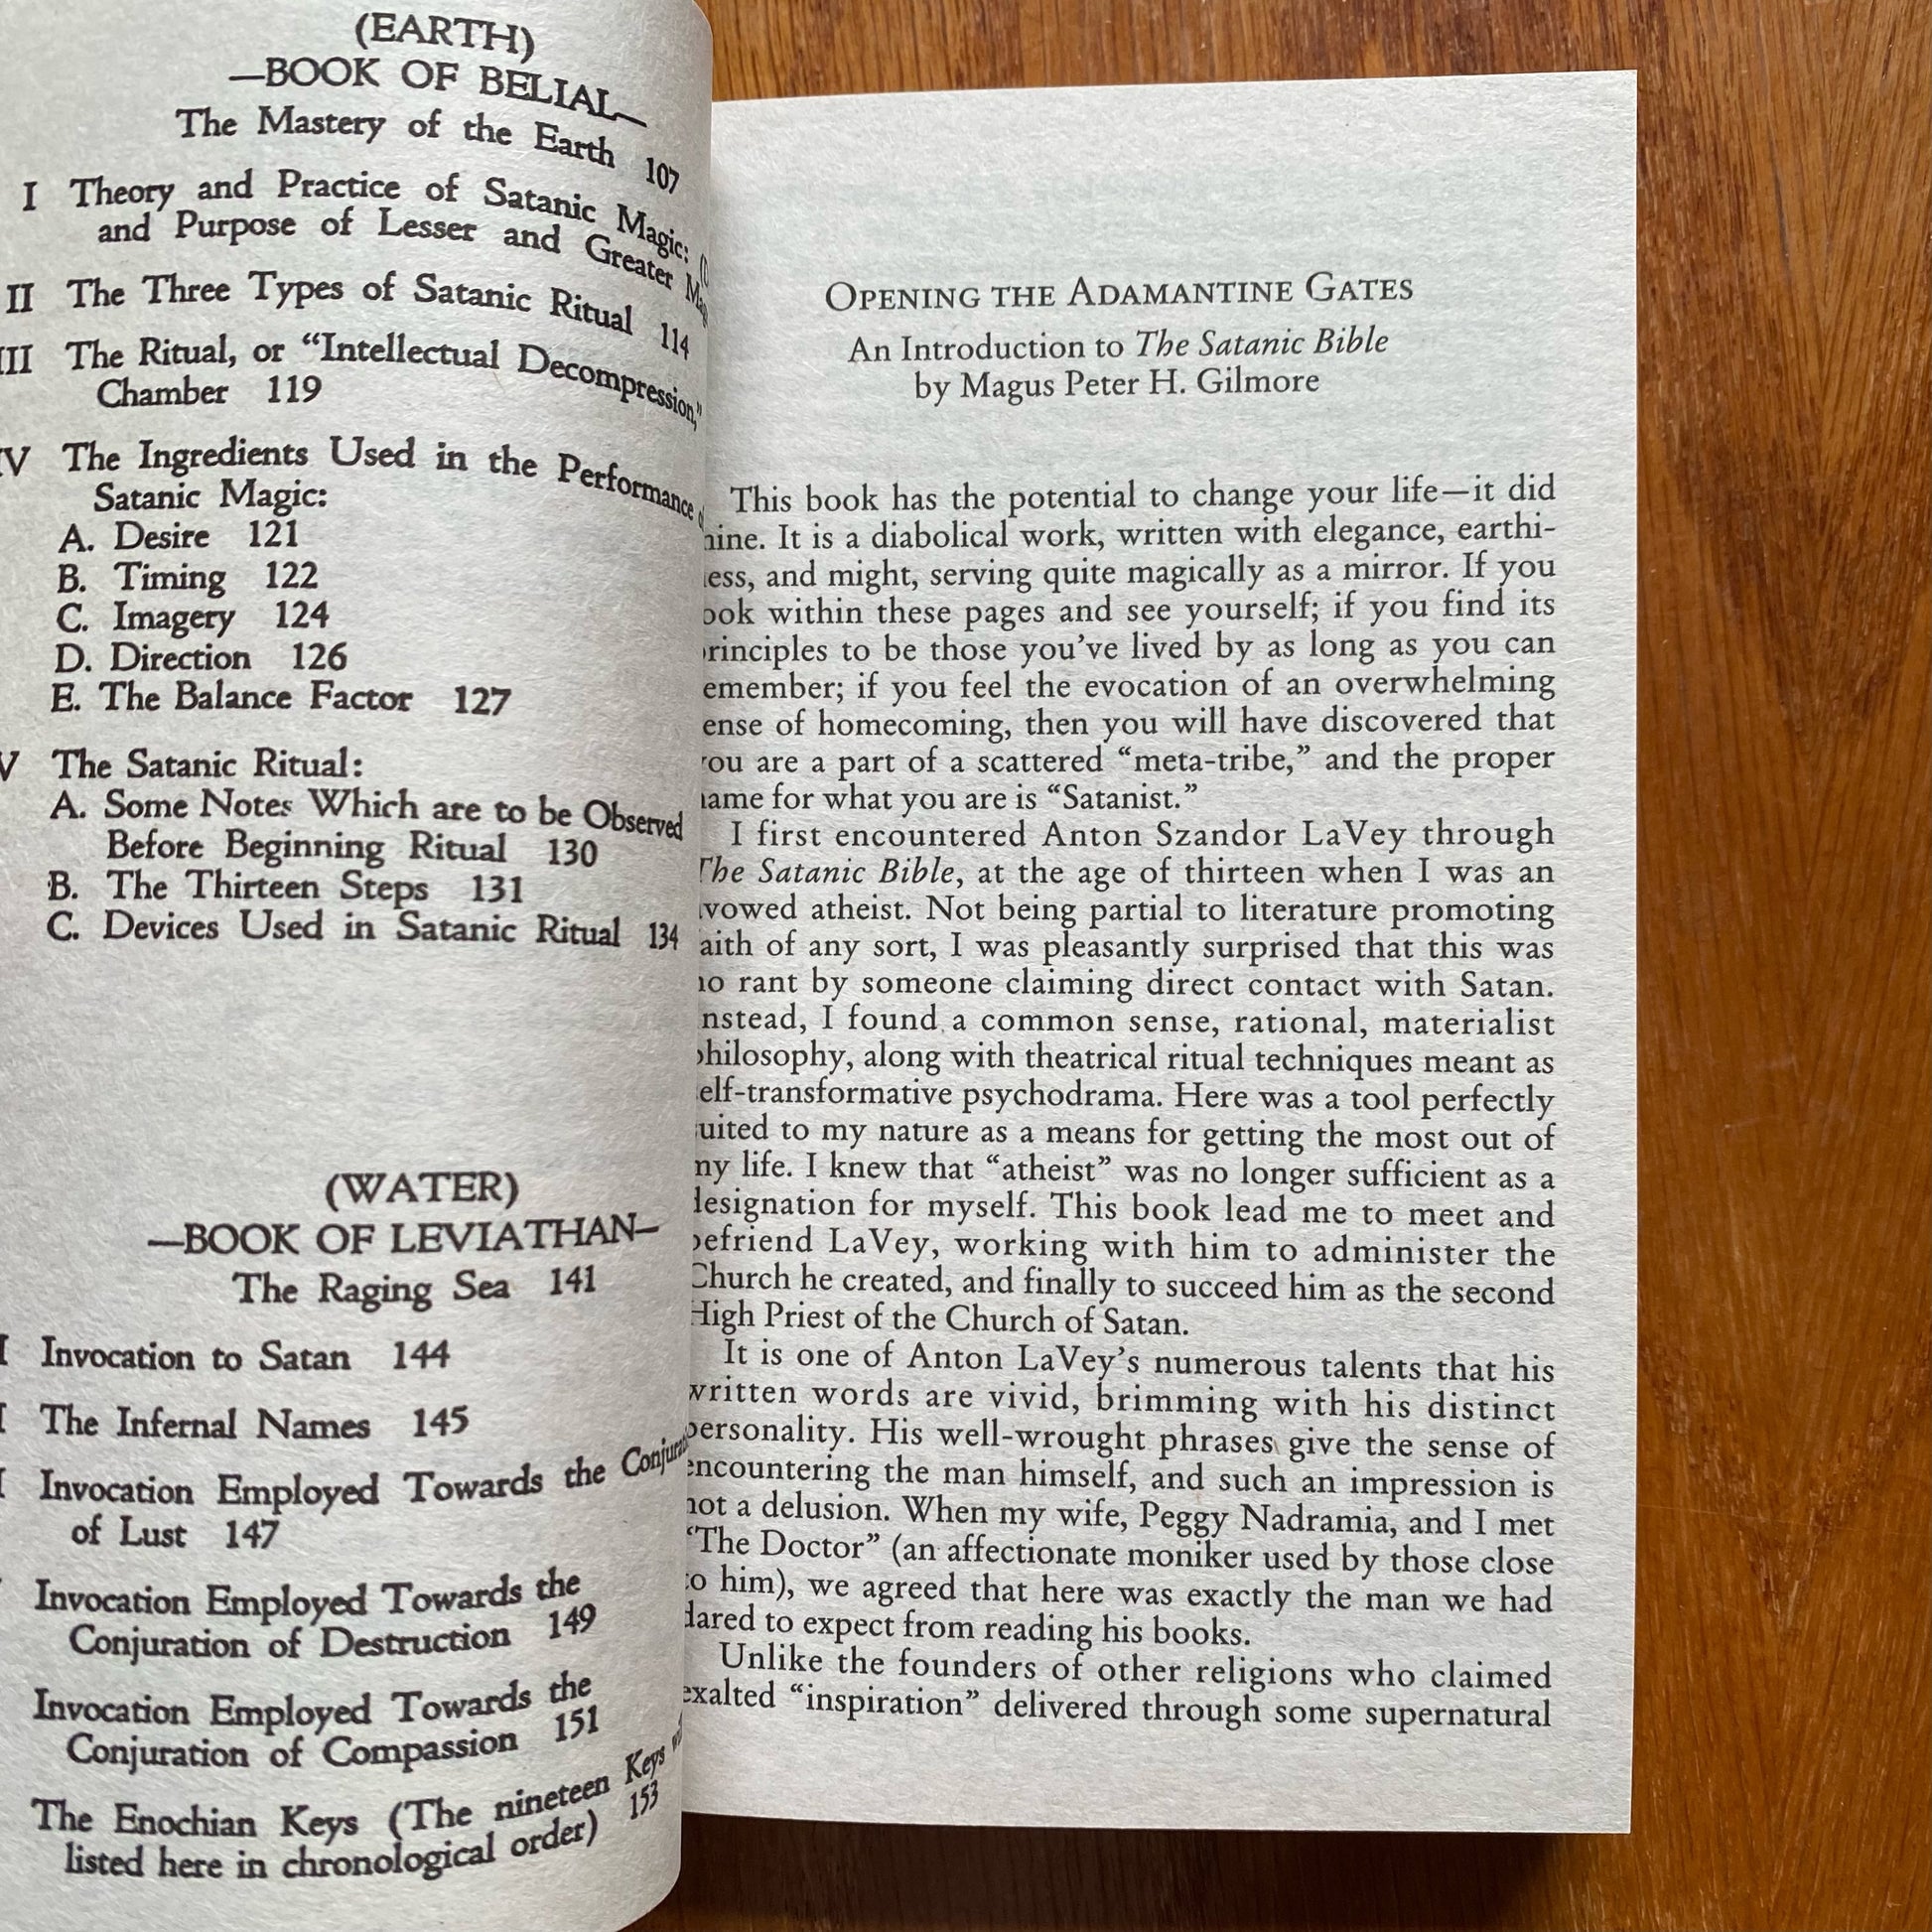 (EARTH)
—BOOK OF BELIAL—
The Mastery of the Earth 107
I Theory and Practice of Satanic Magic:
and Purpose of Lesser and Greater
II The Three Types of Satanic Ritual 114
III The Ritual, or “Intellectual Decompression,”
Chamber 119
IV The Ingredients Used in the Performance
Satanic Magic:
A. Desire 121
B. Timing 122
C. Imagery 124
D. Direction 126
E. The Balance Factor 127
V The Satanic Ritual:
A. Some Notes Which are to be Observed
Before Beginning Ritual 130
B. The Thirteen Steps 131
C. Devices Used in Satanic Ritual 134
(WATER)
—BOOK OF LEVIATHAN—
The Raging Sea 141
Invocation to Satan 144
The Infernal Names 145
Invocation Employed Towards the
of Lust 147
Invocation Employed Towards the
Conjuration of Destruction 149
Invocation Employed Towards the
Conjuration of Compassion 151
The Enochian Keys (The nineteen Keys
listed here in chronological order) 153
OPENING THE ADAMANTINE GATES
An Introduction to The Satanic Bible
by Magus Peter H. Gilmore
This book has the potential to change your life—it did
. It is a diabolical work, written with elegance, earthi-
, and might, serving quite magically as a mirror. If you
within these pages and see yourself; if you find its
to be those you’ve lived by as long as you can
; if you feel the evocation of an overwhelming
of homecoming, then you will have discovered that
are a part of a scattered “meta-tribe,” and the proper
for what you are is “Satanist.”
I first encountered Anton Szandor LaVey through
The Satanic Bible, at the age of thirteen when I was an
atheist. Not being partial to literature promoting
of any sort, I was pleasantly surprised that this was
rant by someone claiming direct contact with Satan.
I found a common sense, rational, materialist
along with theatrical ritual techniques meant as
psychodrama. Here was a tool perfectly
to my nature as a means for getting the most out of
life. I knew that “atheist” was no longer sufficient as a
for myself. This book lead me to meet and
LaVey, working with him to administer the
Church he created, and finally to succeed him as the second
High Priest of the Church of Satan.
It is one of Anton LaVey’s numerous talents that his
written words are vivid, brimming with his distinct
personality. His well-wrought phrases give the sense of
encountering the man himself, and such an impression is
not a delusion. When my wife, Peggy Nadramia, and I met
“The Doctor” (an affectionate moniker used by those close
to him), we agreed that here was exactly the man we had
dared to expect from reading his books.
Unlike the founders of other religions who claimed
exalted “inspiration” delivered through some supernatural